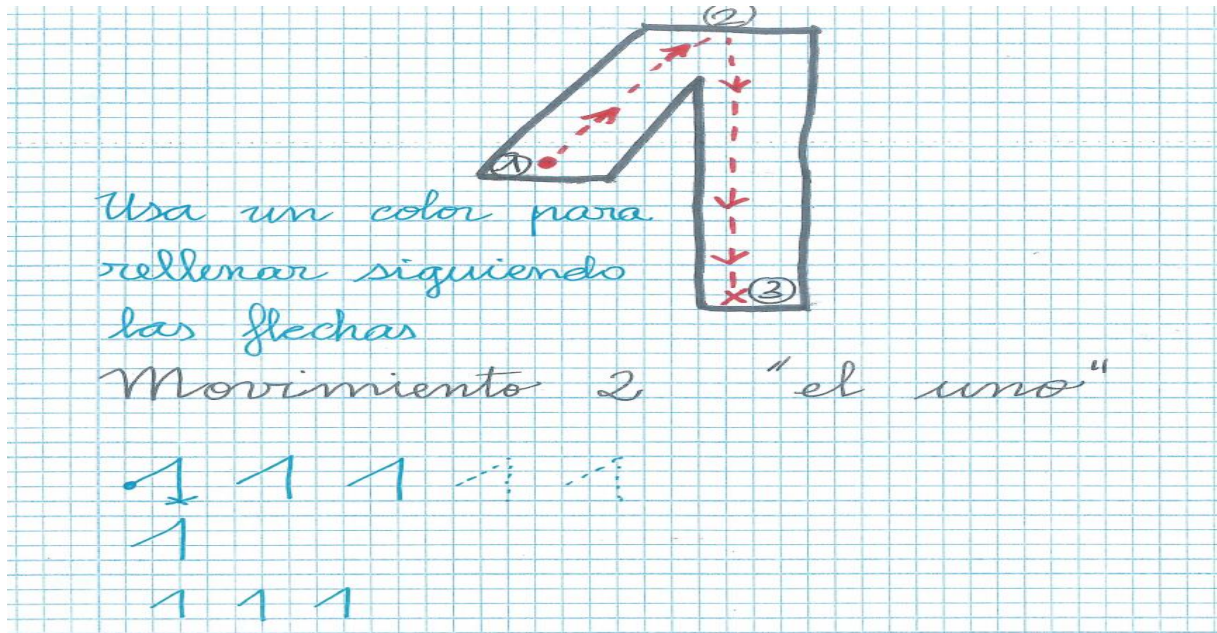 2
1
3
Usa un color para
rellenar siguiendo
las flechas
Movimiento 2 "el uno"
1 1 1 1 1
1
1 1 1